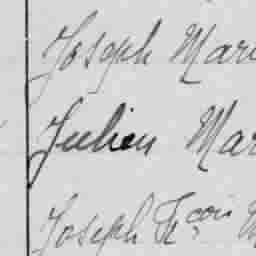 Joseph Mari
Julien Mar
Joseph Fçois M